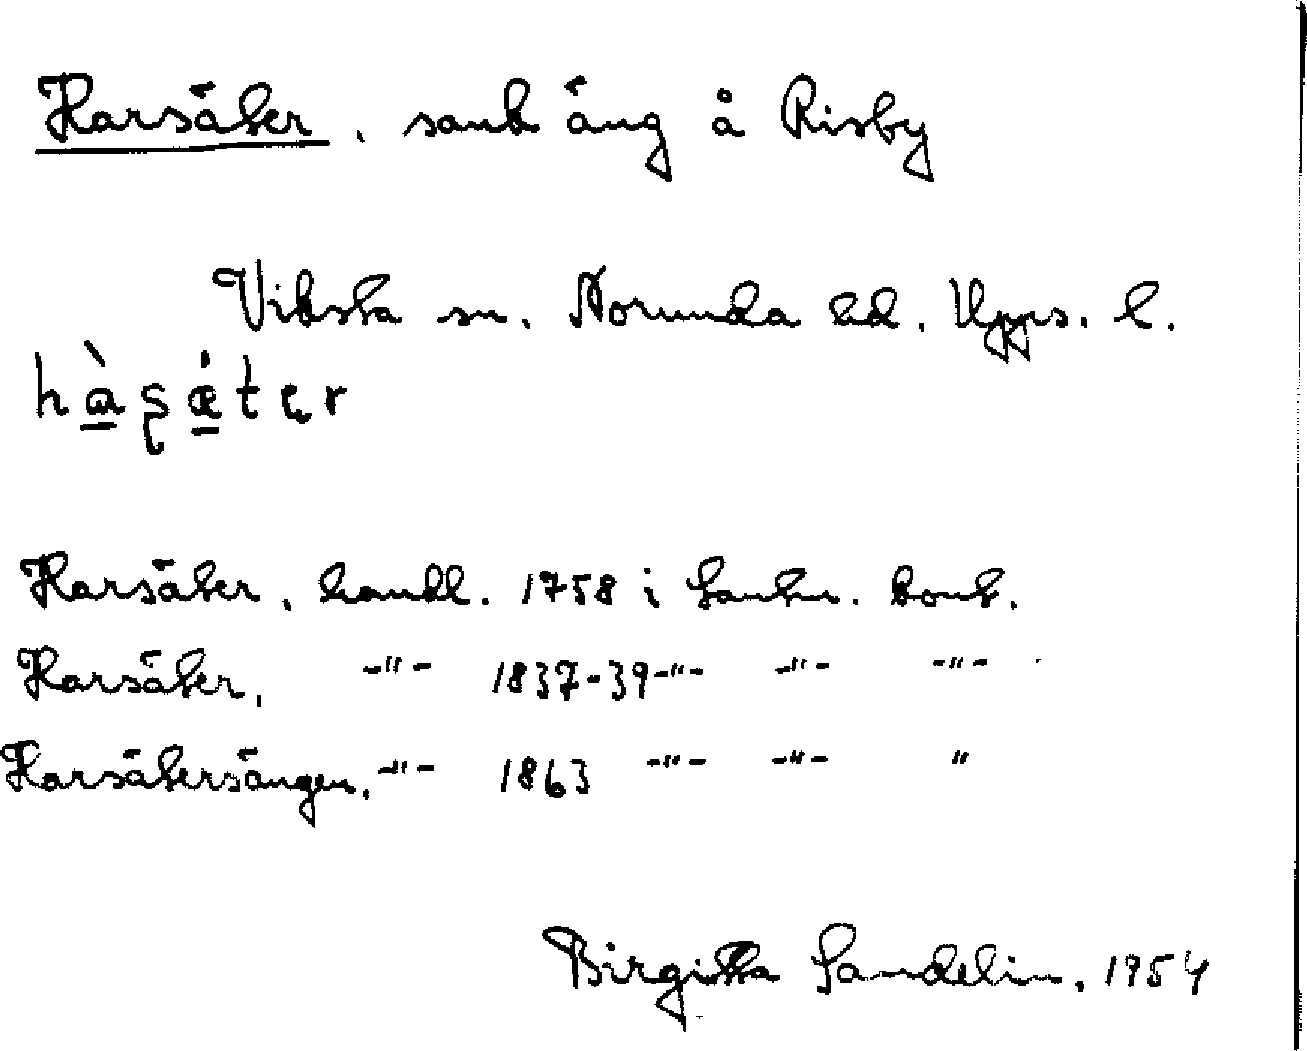 Harsäter, sank äng å Risby
Viksta sn. Norunda hd. Upps. l.
Harsäter, handl. 1758 i Lantm. kont.
Harsäter, -"- 1837-39 -"- -"- -"-
Harsätersängen, -"- 1863 -"- -"- "
Birgitta Sandelin, 1954